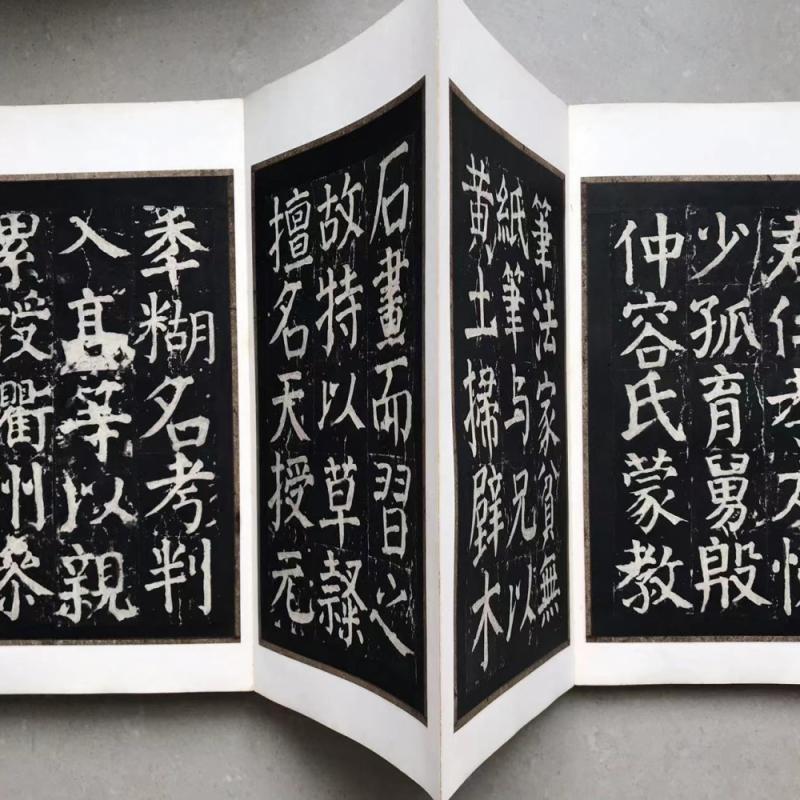 君仁孝友悌
少孤育舅殷
仲容氏蒙教
筆法家貧無
紙筆与兄以
黄土掃壁木
石畫而習之
故特以草隸
擅名天授元
秊糊名考判
入髙等以親
累授衢州叅